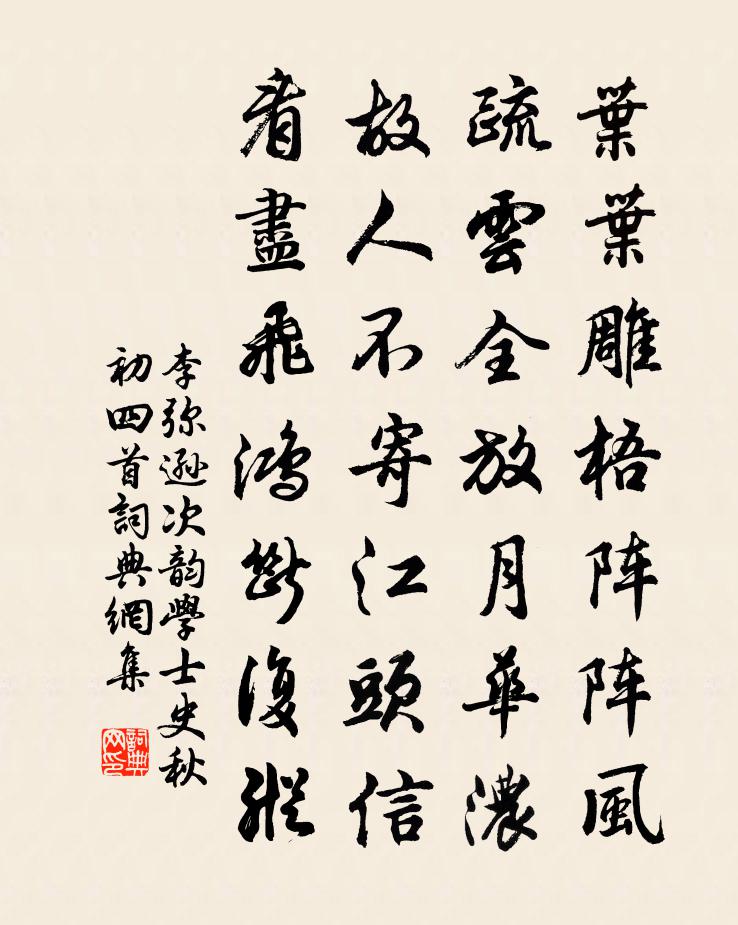 葉葉雕梧阵阵風
疏雲全放月華濃
故人不寄江頭信
看盡飛鴻斷復縱
李弥遜次韵學士史秋
初四首詞典網集
詞典
网印